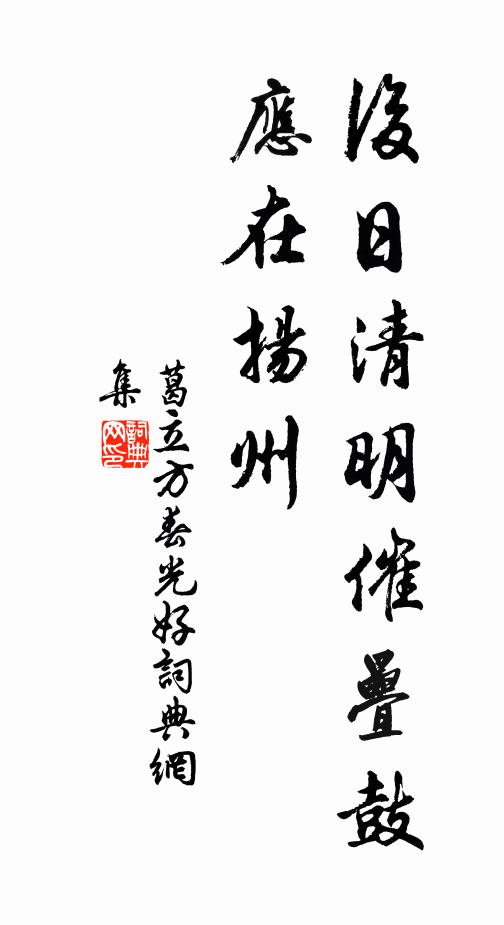 後日清明催疊鼓
應在揚州
葛立方春光好詞典網
集
詞典网印